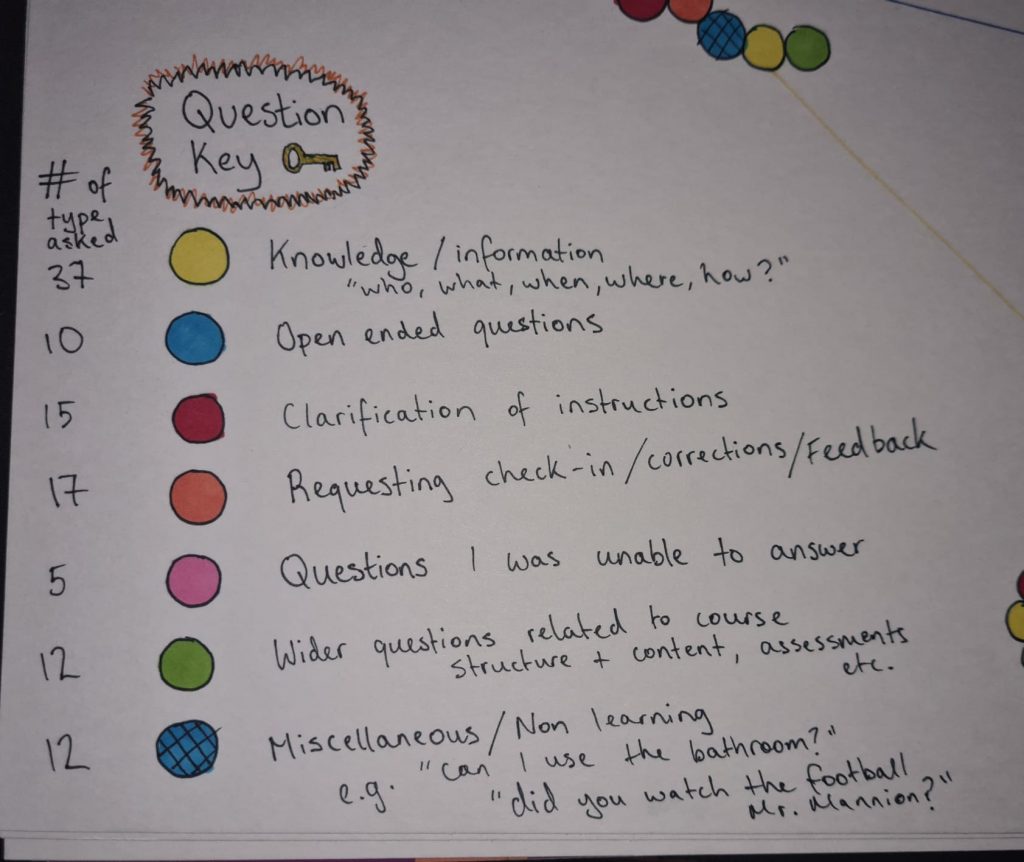 Question
Key
# of
type
asked
37
Knowledge / information
"who, what, when, where, how?"
10
Open ended questions
15
Clarification of instructions
17
Requesting check-in/corrections/Feedback
5
Questions I was unable to answer
12
Wider questions related to course
structure + content, assessments
etc.
12
Miscellaneous/Non learning
e.g. "can I use the bathroom?"
"did you watch the football
Mr. Mannion?"